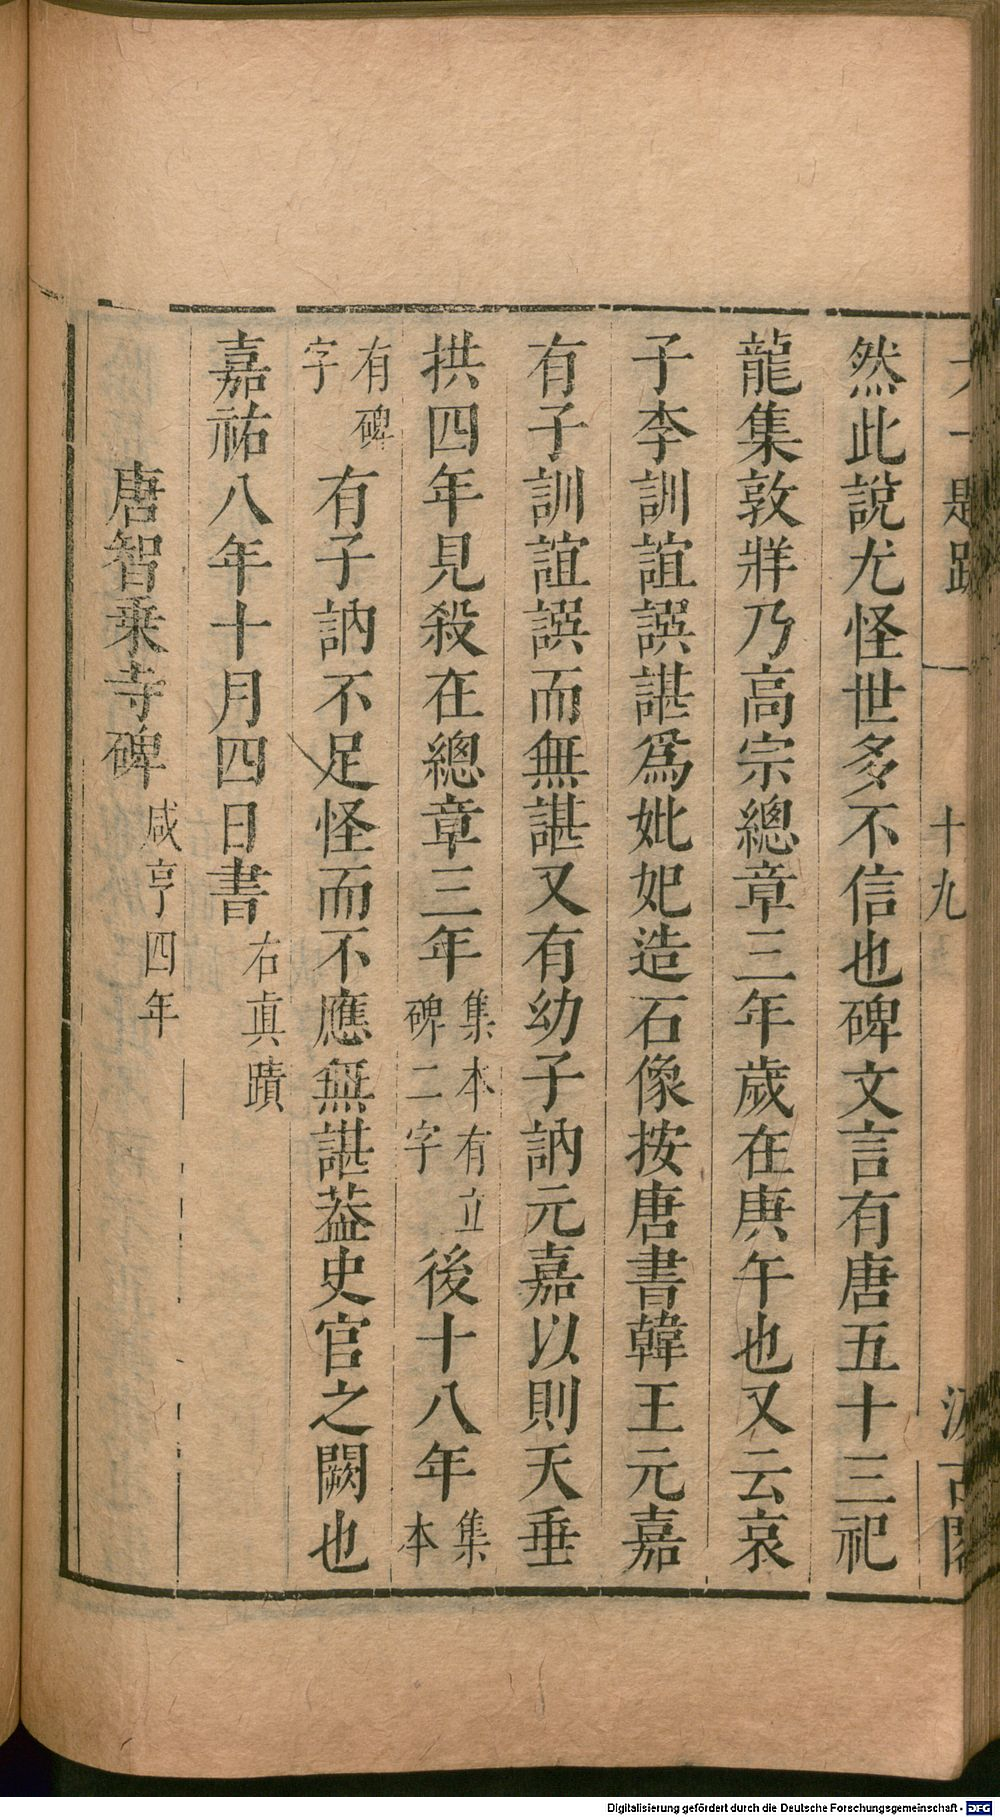 十九
然此說尤怪世多不信也碑文言有唐五十三祀
龍集敦牂乃高宗總章三年歲在庚午也又云哀
子李訓誼譔諶爲妣妃造石像按唐書韓王元嘉
有子訓誼譔而無諶又有幼子訥元嘉以則天垂
拱四年見殺在總章三年集本有立碑二字後十八年集本
有碑字有子訥不足怪而不應無諶葢史官之闕也
嘉祐八年十月四日書右眞蹟
唐智乗寺碑咸亨四年
Digitalisierung gefördert durch die Deutsche Forschungsgemeinschaft - DFG